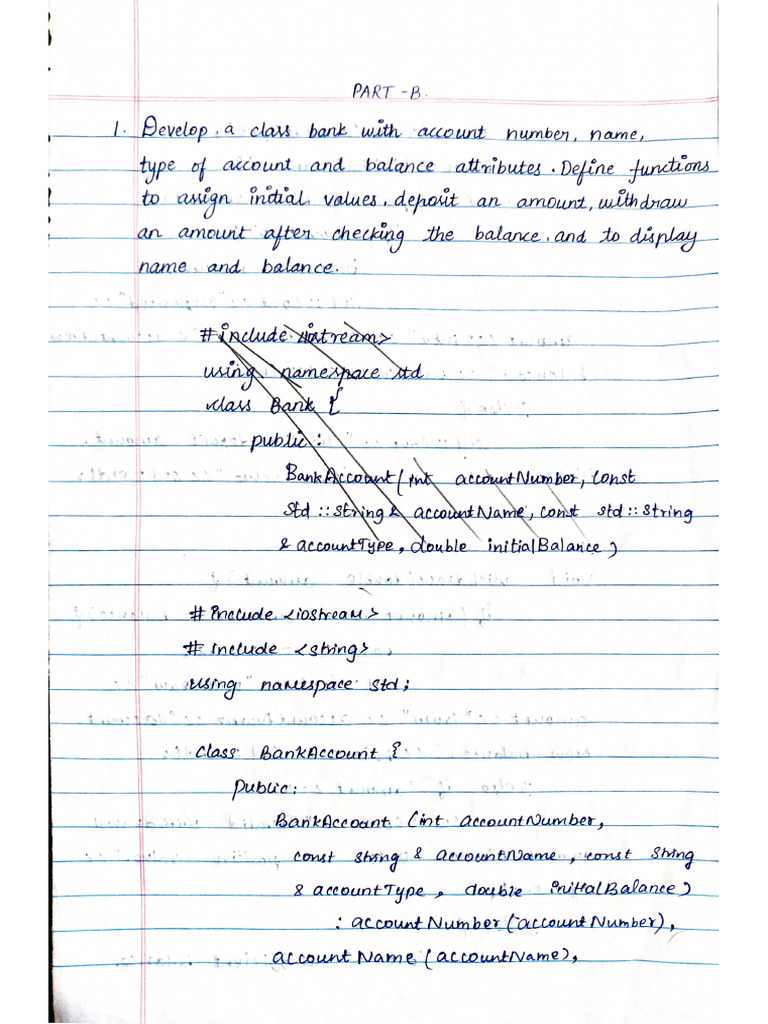 PART -B.
1. Develop a class bank with account number, name,
type of account and balance attributes. Define functions
to assign initial values, deposit an amount, withdraw
an amount after checking the balance, and to display
name and balance.
#include <iostream>
using namespace std
class Bank {
public :
BankAccount(int accountNumber, const
std :: string & accountName, const std :: string
& accountType, double initialBalance)
# include <iostream>
# include <string>
using namespace std;
class BankAccount {
public:
BankAccount (int accountNumber,
const string & accountName, const string
& accountType, double initialBalance)
: accountNumber(accountNumber),
accountName (accountName),